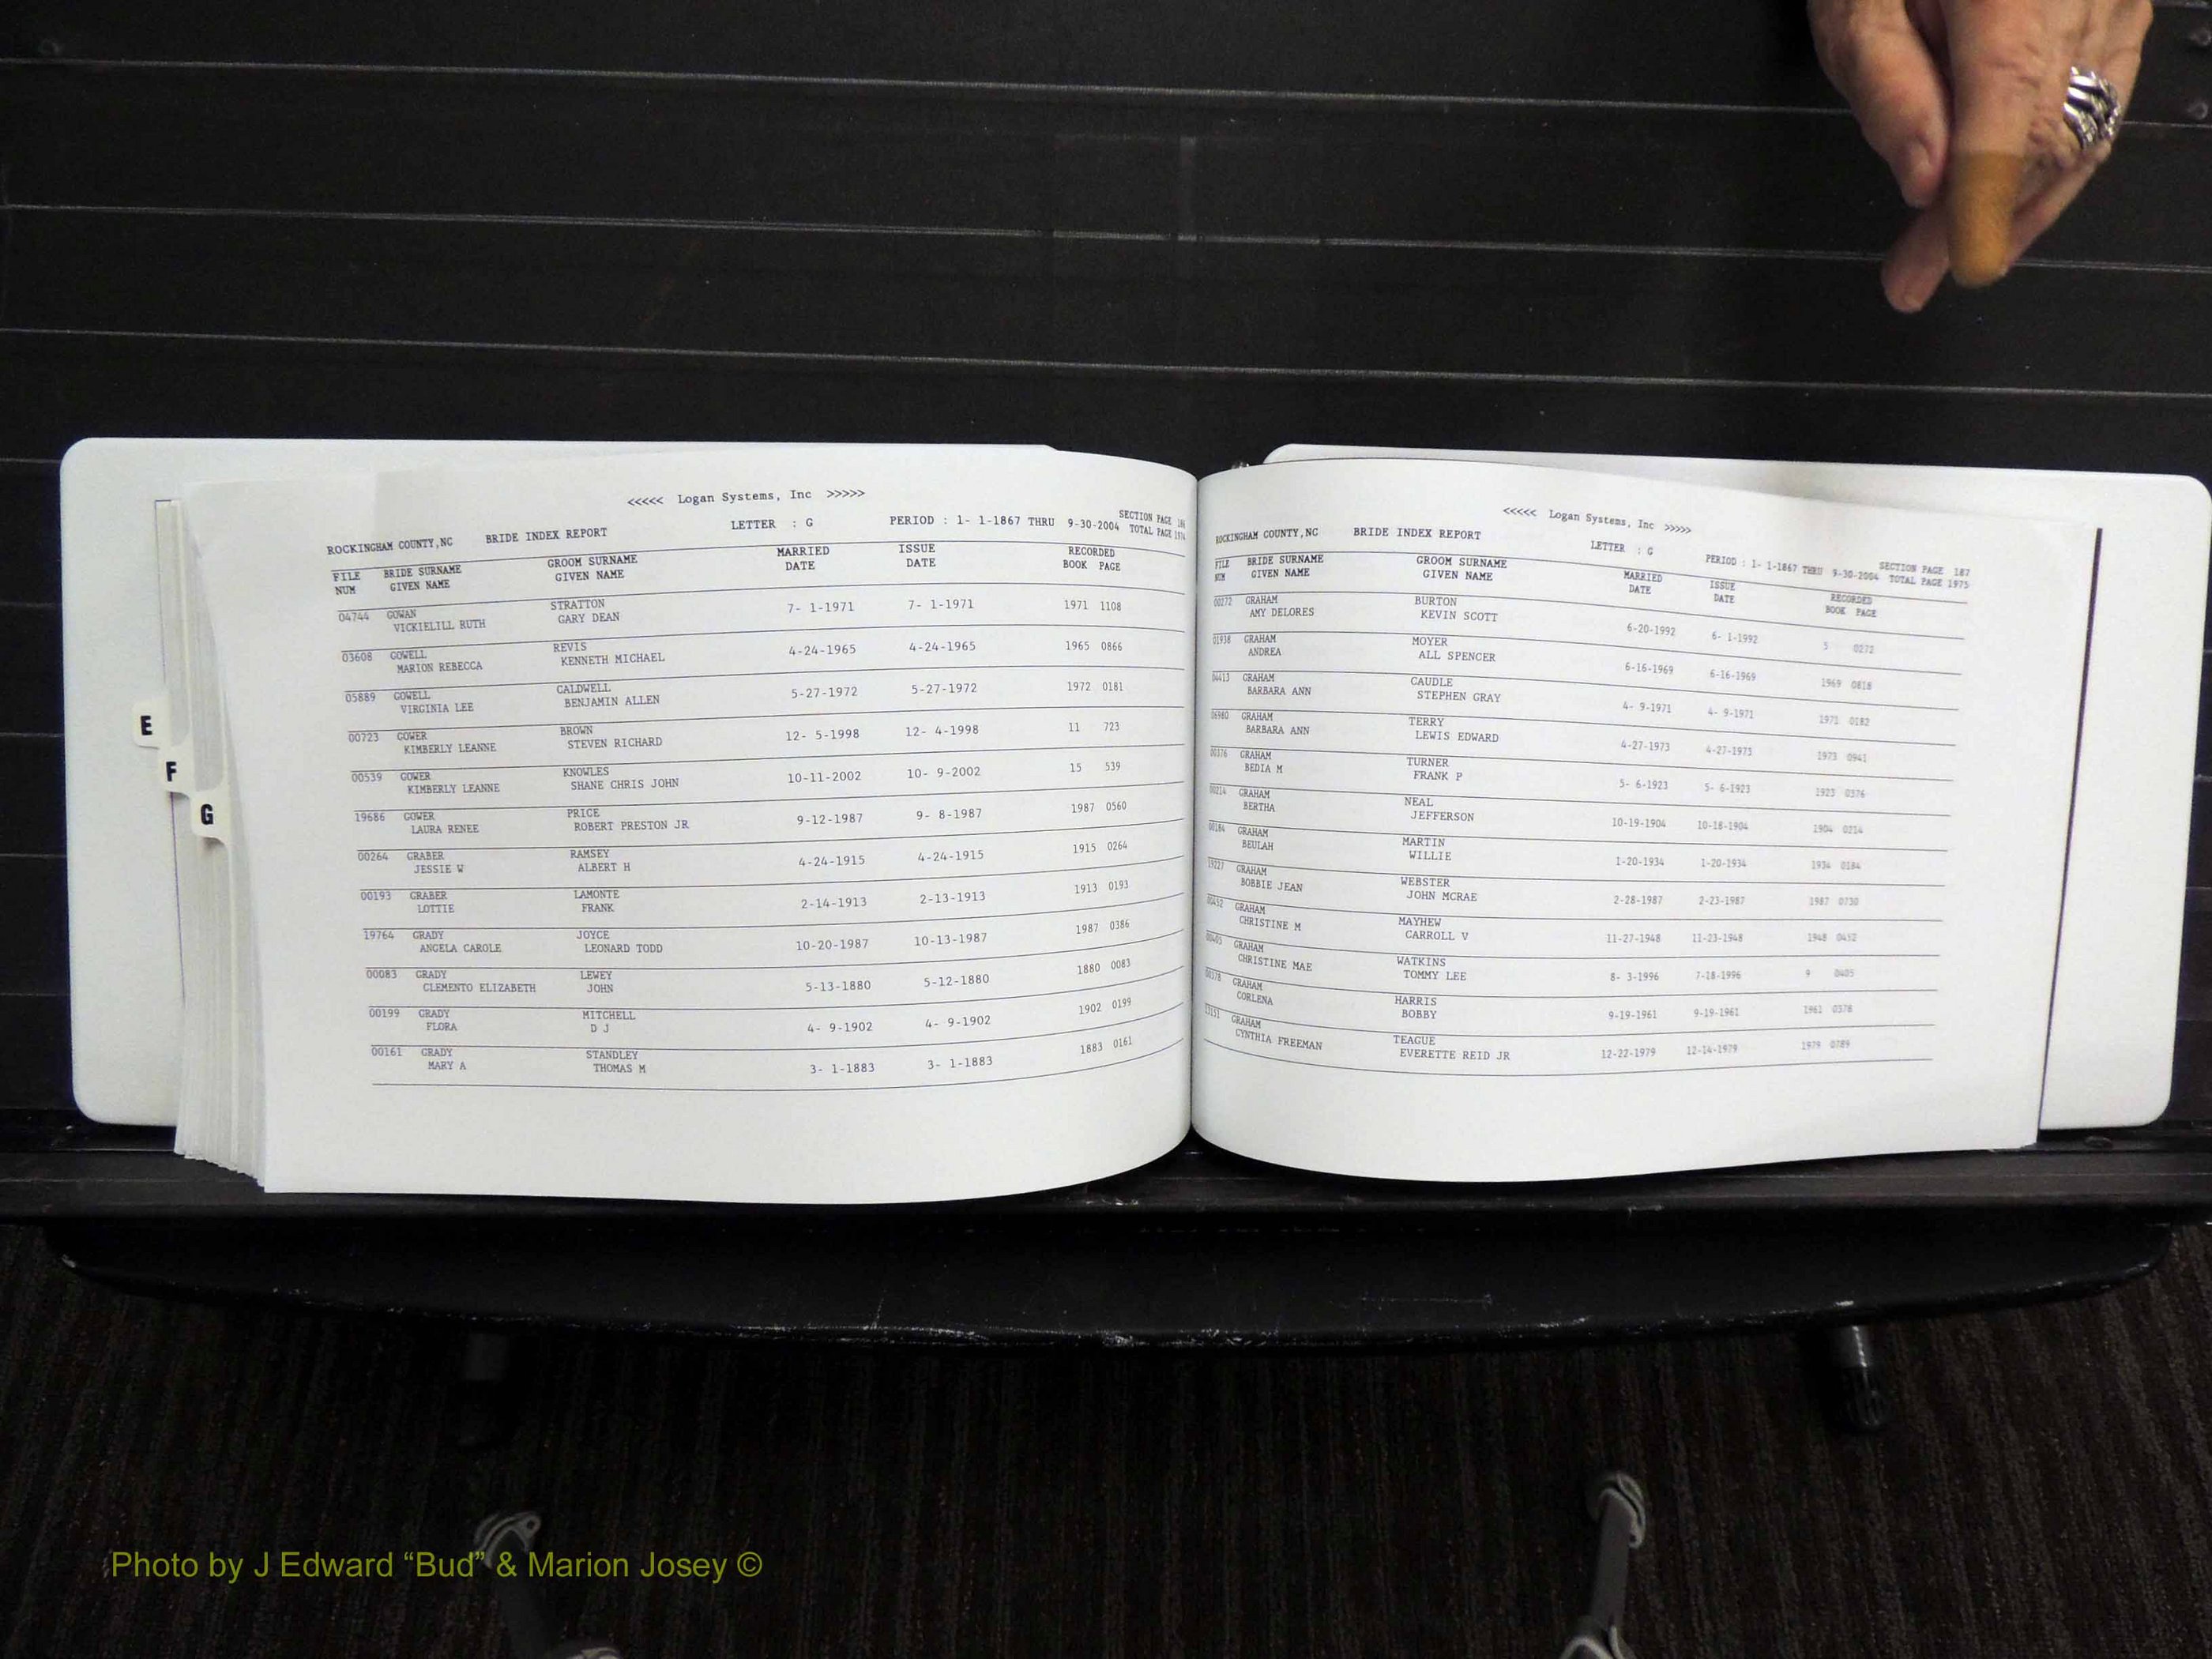 <<<<< Logan Systems, Inc >>>>>
ROCKINGHAM COUNTY,NC BRIDE INDEX REPORT LETTER : G PERIOD : 1- 1-1867 THRU 9-30-2004 SECTION PAGE 186
TOTAL PAGE 1974
FILE BRIDE SURNAME GROOM SURNAME MARRIED ISSUE RECORDED
NUM GIVEN NAME GIVEN NAME DATE DATE BOOK PAGE
04744 GOWAN STRATTON 7- 1-1971 7- 1-1971 1971 1108
VICKIELILL RUTH GARY DEAN
03608 GOWELL REVIS 4-24-1965 4-24-1965 1965 0866
MARION REBECCA KENNETH MICHAEL
05889 GOWELL CALDWELL 5-27-1972 5-27-1972 1972 0181
VIRGINIA LEE BENJAMIN ALLEN
00723 GOWER BROWN 12- 5-1998 12- 4-1998 11 723
KIMBERLY LEANNE STEVEN RICHARD
00539 GOWER KNOWLES 10-11-2002 10- 9-2002 15 539
KIMBERLY LEANNE SHANE CHRIS JOHN
19686 GOWER PRICE 9-12-1987 9- 8-1987 1987 0560
LAURA RENEE ROBERT PRESTON JR
00264 GRABER RAMSEY 4-24-1915 4-24-1915 1915 0264
JESSIE W ALBERT H
00193 GRABER LAMONTE 2-14-1913 2-13-1913 1913 0193
LOTTIE FRANK
19764 GRADY JOYCE 10-20-1987 10-13-1987 1987 0386
ANGELA CAROLE LEONARD TODD
00083 GRADY LEWEY 5-13-1880 5-12-1880 1880 0083
CLEMENTO ELIZABETH JOHN
00199 GRADY MITCHELL 4- 9-1902 4- 9-1902 1902 0199
FLORA D J
00161 GRADY STANDLEY 3- 1-1883 3- 1-1883 1883 0161
MARY A THOMAS M
E
F
G
<<<<< Logan Systems, Inc >>>>>
ROCKINGHAM COUNTY,NC BRIDE INDEX REPORT LETTER : G PERIOD : 1- 1-1867 THRU 9-30-2004 SECTION PAGE 187
TOTAL PAGE 1975
FILE BRIDE SURNAME GROOM SURNAME MARRIED ISSUE RECORDED
NUM GIVEN NAME GIVEN NAME DATE DATE BOOK PAGE
00272 GRAHAM BURTON 6-20-1992 6- 1-1992 5 0272
AMY DELORES KEVIN SCOTT
01938 GRAHAM MOYER 6-16-1969 6-16-1969 1969 0818
ANDREA ALL SPENCER
04413 GRAHAM CAUDLE 4- 9-1971 4- 9-1971 1971 0182
BARBARA ANN STEPHEN GRAY
06980 GRAHAM TERRY 4-27-1973 4-27-1973 1973 0941
BARBARA ANN LEWIS EDWARD
00376 GRAHAM TURNER 5- 6-1923 5- 6-1923 1923 0376
BEDIA M FRANK P
00214 GRAHAM NEAL 10-19-1904 10-18-1904 1904 0214
BERTHA JEFFERSON
00184 GRAHAM MARTIN 1-20-1934 1-20-1934 1934 0184
BEULAH WILLIE
GRAHAM WEBSTER 2-28-1987 2-23-1987 1987 0730
BOBBIE JEAN JOHN MCRAE
00452 GRAHAM MAYHEW 11-27-1948 11-23-1948 1948 0452
CHRISTINE M CARROLL V
00405 GRAHAM WATKINS 8- 3-1996 7-18-1996 9 0405
CHRISTINE MAE TOMMY LEE
00378 GRAHAM HARRIS 9-19-1961 9-19-1961 1961 0378
CORLENA BOBBY
GRAHAM TEAGUE 12-22-1979 12-14-1979 1979 0789
CYNTHIA FREEMAN EVERETTE REID JR
Photo by J Edward “Bud” & Marion Josey ©